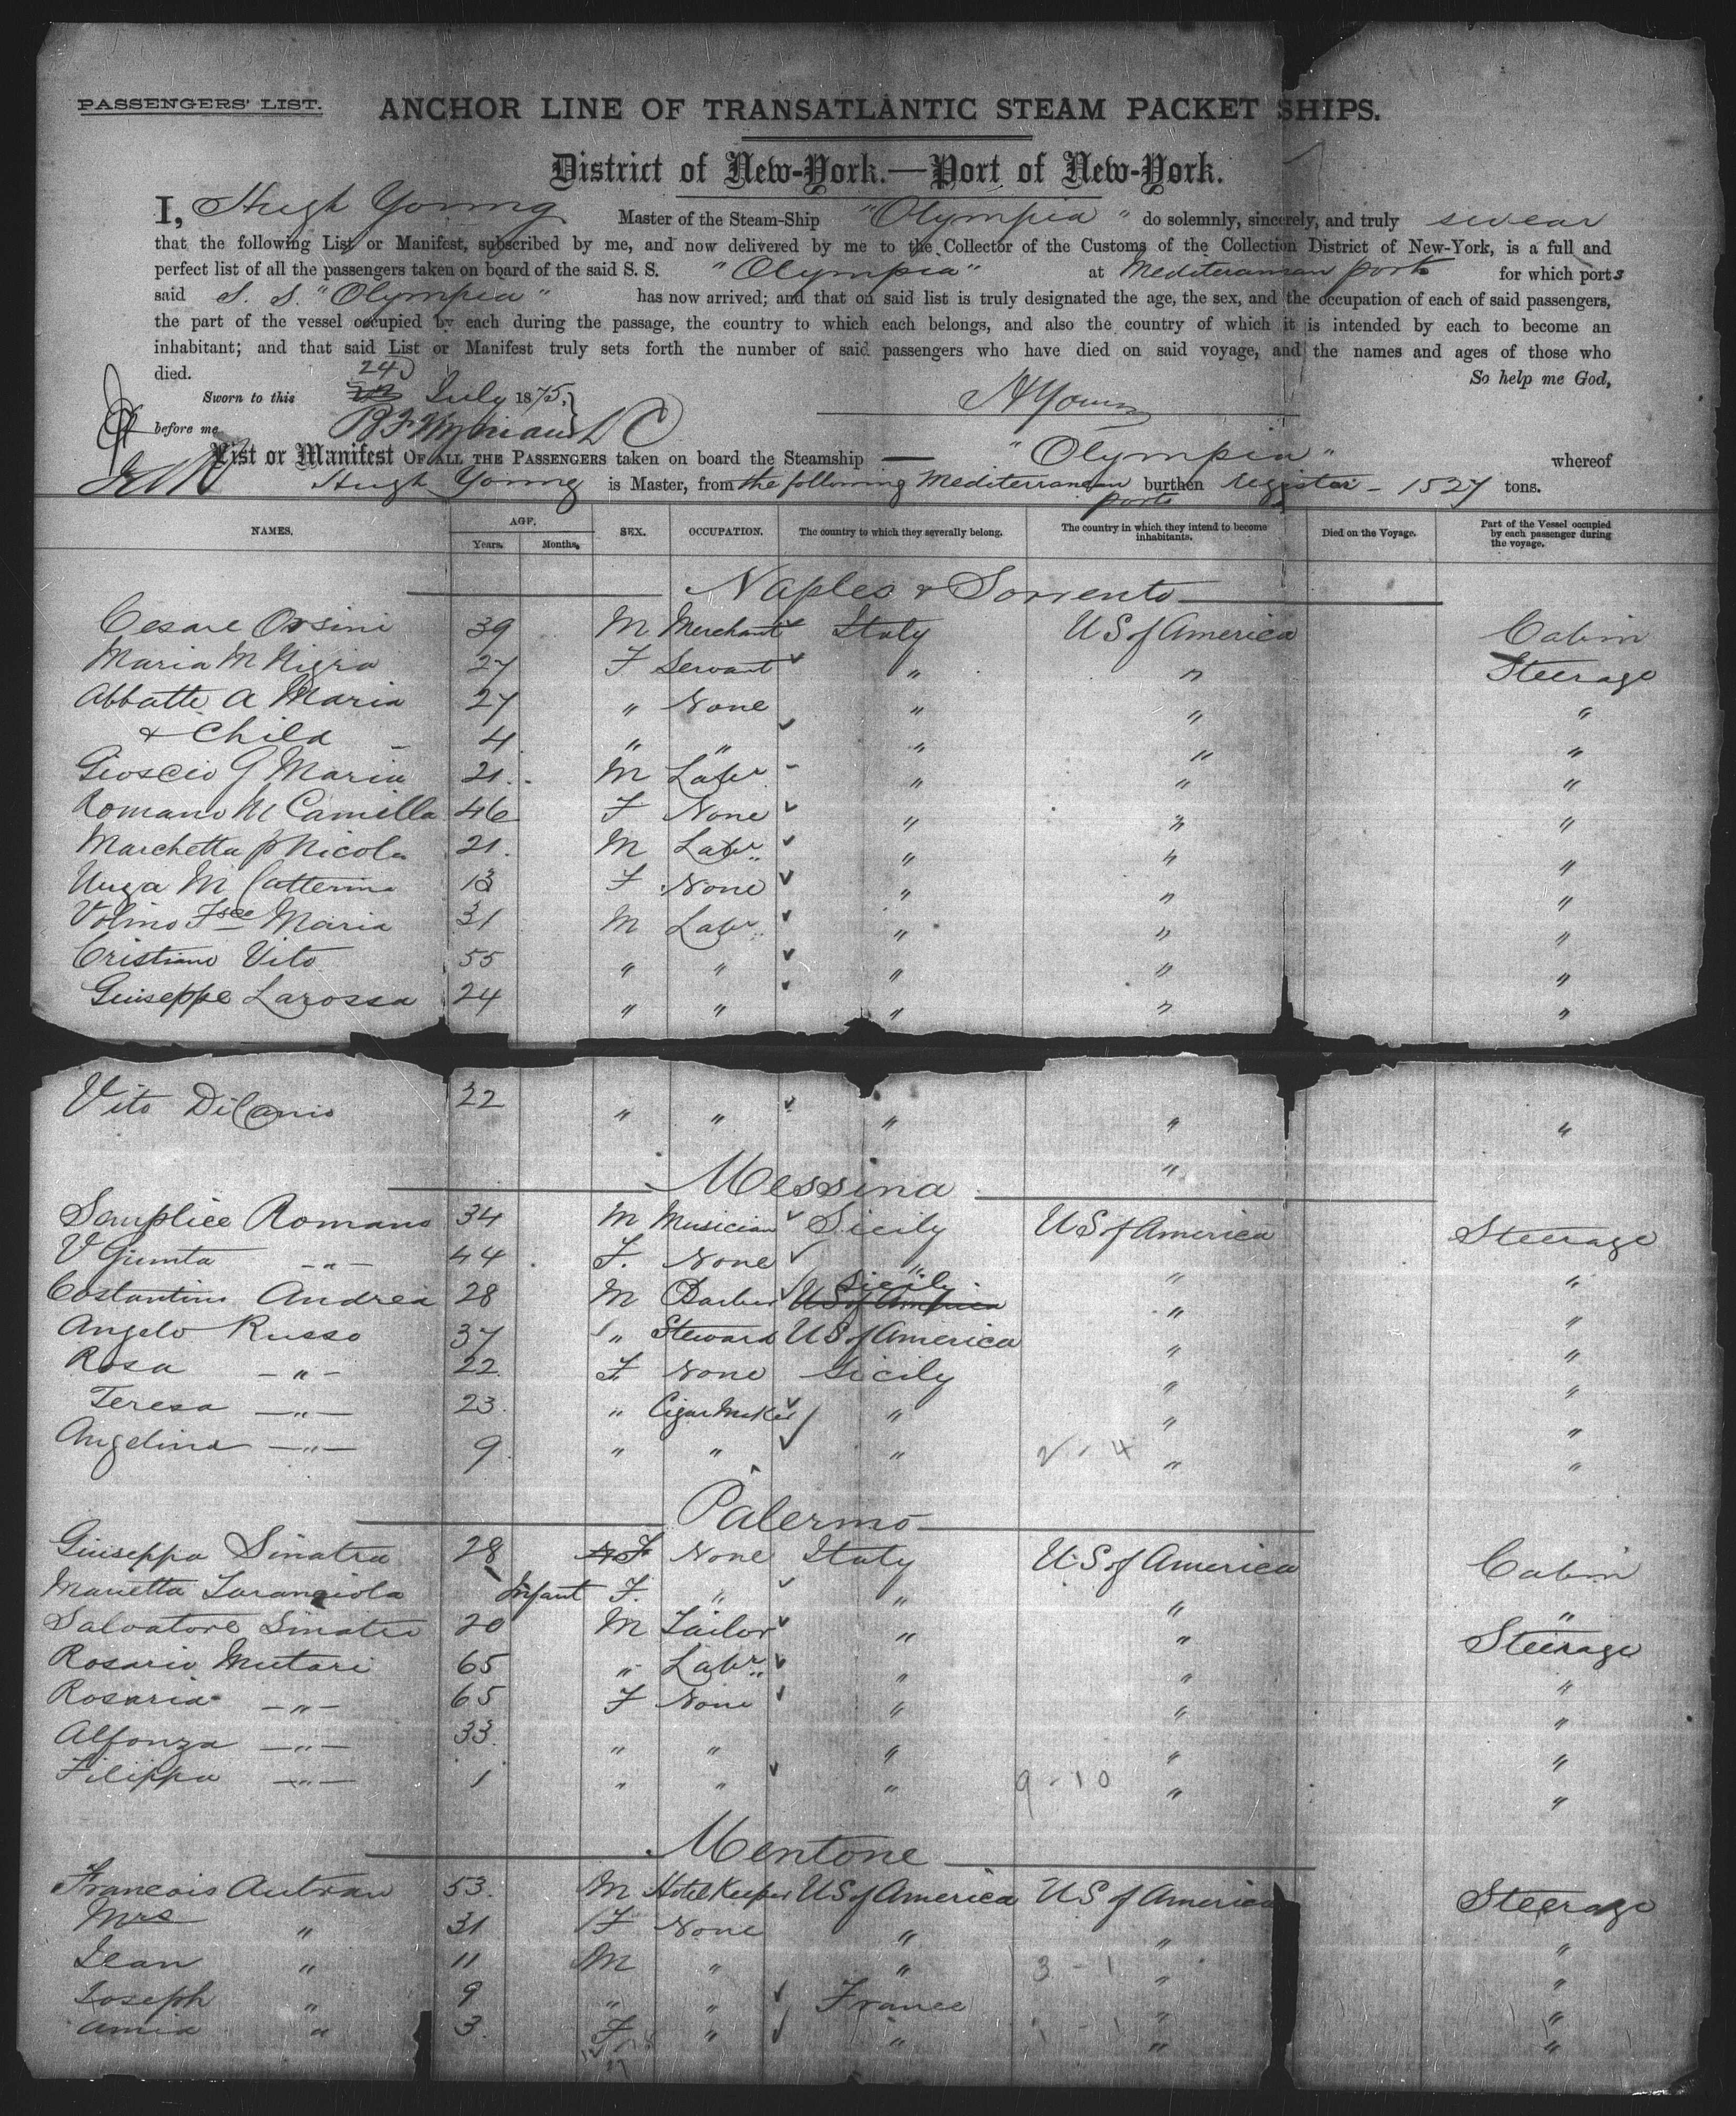 PASSENGERS' LIST. ANCHOR LINE OF TRANSATLANTIC STEAM PACKET SHIPS.
District of New-York.—Port of New-York.
I, Hugh Young Master of the Steam-Ship "Olympia" do solemnly, sincerely, and truly swear
that the following List or Manifest, subscribed by me, and now delivered by me to the Collector of the Customs of the Collection District of New-York, is a full and
perfect list of all the passengers taken on board of the said S. S. "Olympia" at Mediteranean ports for which ports
said S. S. "Olympia" has now arrived; and that on said list is truly designated the age, the sex, and the occupation of each of said passengers,
the part of the vessel occupied by each during the passage, the country to which each belongs, and also the country of which it is intended by each to become an
inhabitant; and that said List or Manifest truly sets forth the number of said passengers who have died on said voyage, and the names and ages of those who
died. So help me God,
Sworn to this 24 July 1875. H Young
before me
List or Manifest OF ALL THE PASSENGERS taken on board the Steamship — "Olympia" whereof
Hugh Young is Master, from the following Mediterranean ports burthen register - 1527 tons.
NAMES. AGE. Years. Months. SEX. OCCUPATION. The country to which they severally belong. The country in which they intend to become inhabitants. Died on the Voyage. Part of the Vessel occupied by each passenger during the voyage.
Naples & Sorrento
Cesare Orsini 39 M Merchant Italy US of America Cabin
Maria M Nigro 27 F Servant " " Steerage
Abbatte A Maria 27 " None " " "
& Child 4 " " " " "
Gioscio G Maria 21 M Labr " " "
Romano M Camilla 46 F None " " "
Marchetta P Nicola 21 M Labr " " "
M Catterina 13 F None " " "
Volino Fsco Maria 31 M Labr " " "
Cristiano Vito 55 " " " " "
Giuseppe Larossa 24 " " " " "
Vito DiCanio 22 " " " " "
Messina "
Semplice Romano 34 M Musician Sicily US of America Steerage
V Giunta -"- 44 F. None " " "
Costantino Andrea 28 M Barber US of America Sicily " "
Angelo Russo 37 " Steward US of America " "
Rosa -"- 22 F None Sicily " "
Teresa -"- 23 " Cigar Maker " " "
Angelina -"- 9 " " " 2 - 4 " "
Palermo
Giuseppa Sinatra 28 F None Italy US of America Cabin
Marietta Infant F. " " " "
Salvatore Sinatra 20 M Tailor " " Steerage
Rosario Mutari 65 " Labr " " "
Rosaria -"- 65 F None " " "
Alfonza -"- 33 " " " " "
Filippa -"- 1 " " " 9 - 10 " "
Mentone
Francois Autran 53 M Hotel Keeper US of America US of America Steerage
Mrs " 31 F None " " "
Jean " 11 M " " 3 - 1 " "
Joseph " 9 " " France " "
" 3 F " " " "